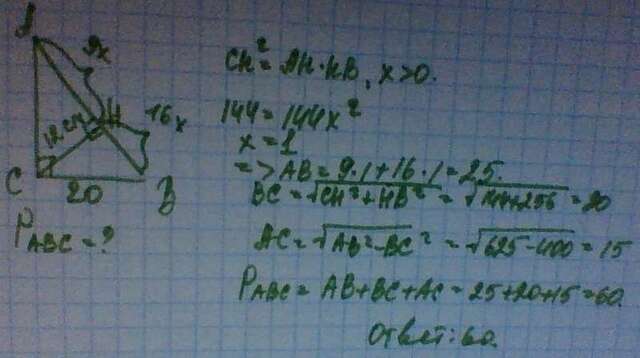 A
9x
12 см
H
16x
C
20
B
P_ABC = ?
CH² = AH·HB, x>0.
144 = 144x²
x = 1
=> AB = 9·1 + 16·1 = 25.
BC = √CH² + HB² = √144+256 = 20
AC = √AB² - BC² = √625 - 400 = 15
P_ABC = AB + BC + AC = 25 + 20 + 15 = 60.
Ответ: 60.